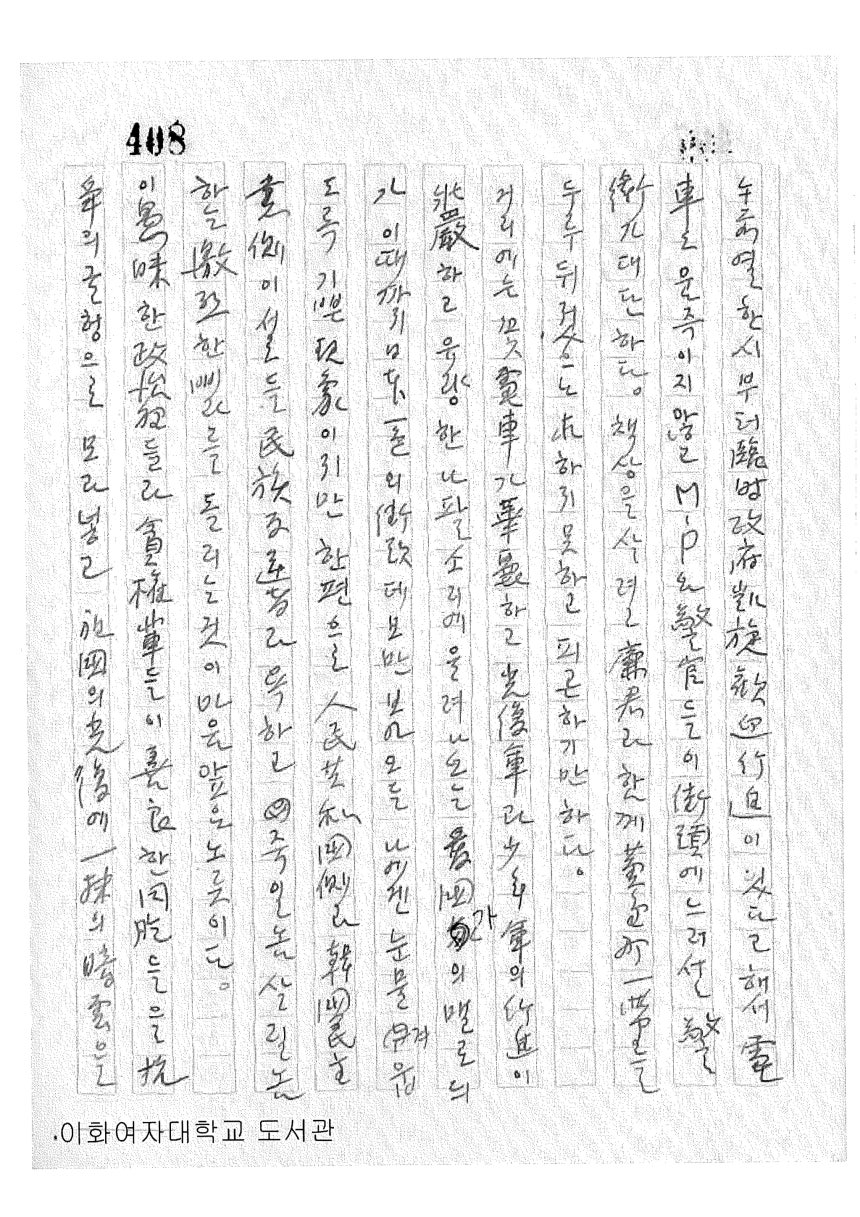 408
오후 열한시부터 臨時政府凱旋歡迎行進이 있다고 해서 電
車도 운즉이지 않고 M·P와 警官들이 街頭에 느러서 警
衛가 대단하다. 책상을 사려고 廉君과 함께 를
두루 뒤젔으나 求하지 못하고 피곤하기만 하다.
거리에는 꽃電車가 華麗하고 光復軍과 少年軍의 行進이
壯嚴하고 유량한 나팔소리에 울려나오는 愛國가의 멜로듸
가 이때까지 日本 의 街頭데모만 보아오든 나에겐 눈물겨웁
도록 기쁜 現象이지만 한편으로 人民共和國側과 韓國民主
黨側이 서로들 民族反逆者라 욕하고 죽일놈 살릴놈
하는 激烈한 삐라를 돌리는것이 마음앞은 노릇이다.
이 愚昧한 政治 들과 貪權輩들이 善良한 同胞들을 抗
爭의 굴헝으로 모라넣고 祖國의 光復에 一抹의 暗雲을
이화여자대학교 도서관